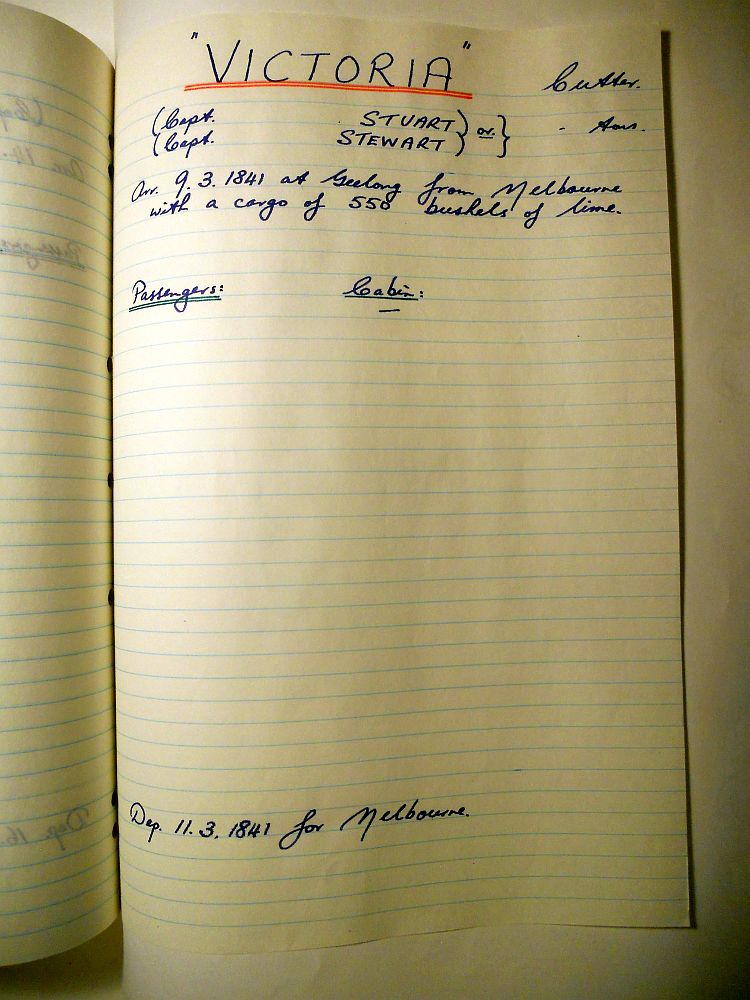 "VICTORIA" Cutter.
(Capt. STUART) or } - tons.
(Capt. STEWART)
Arr. 9.3.1841 at Geelong from Melbourne
with a cargo of 550 bushels of lime.
Passengers: Cabin:
—
Dep. 11.3.1841 for Melbourne.